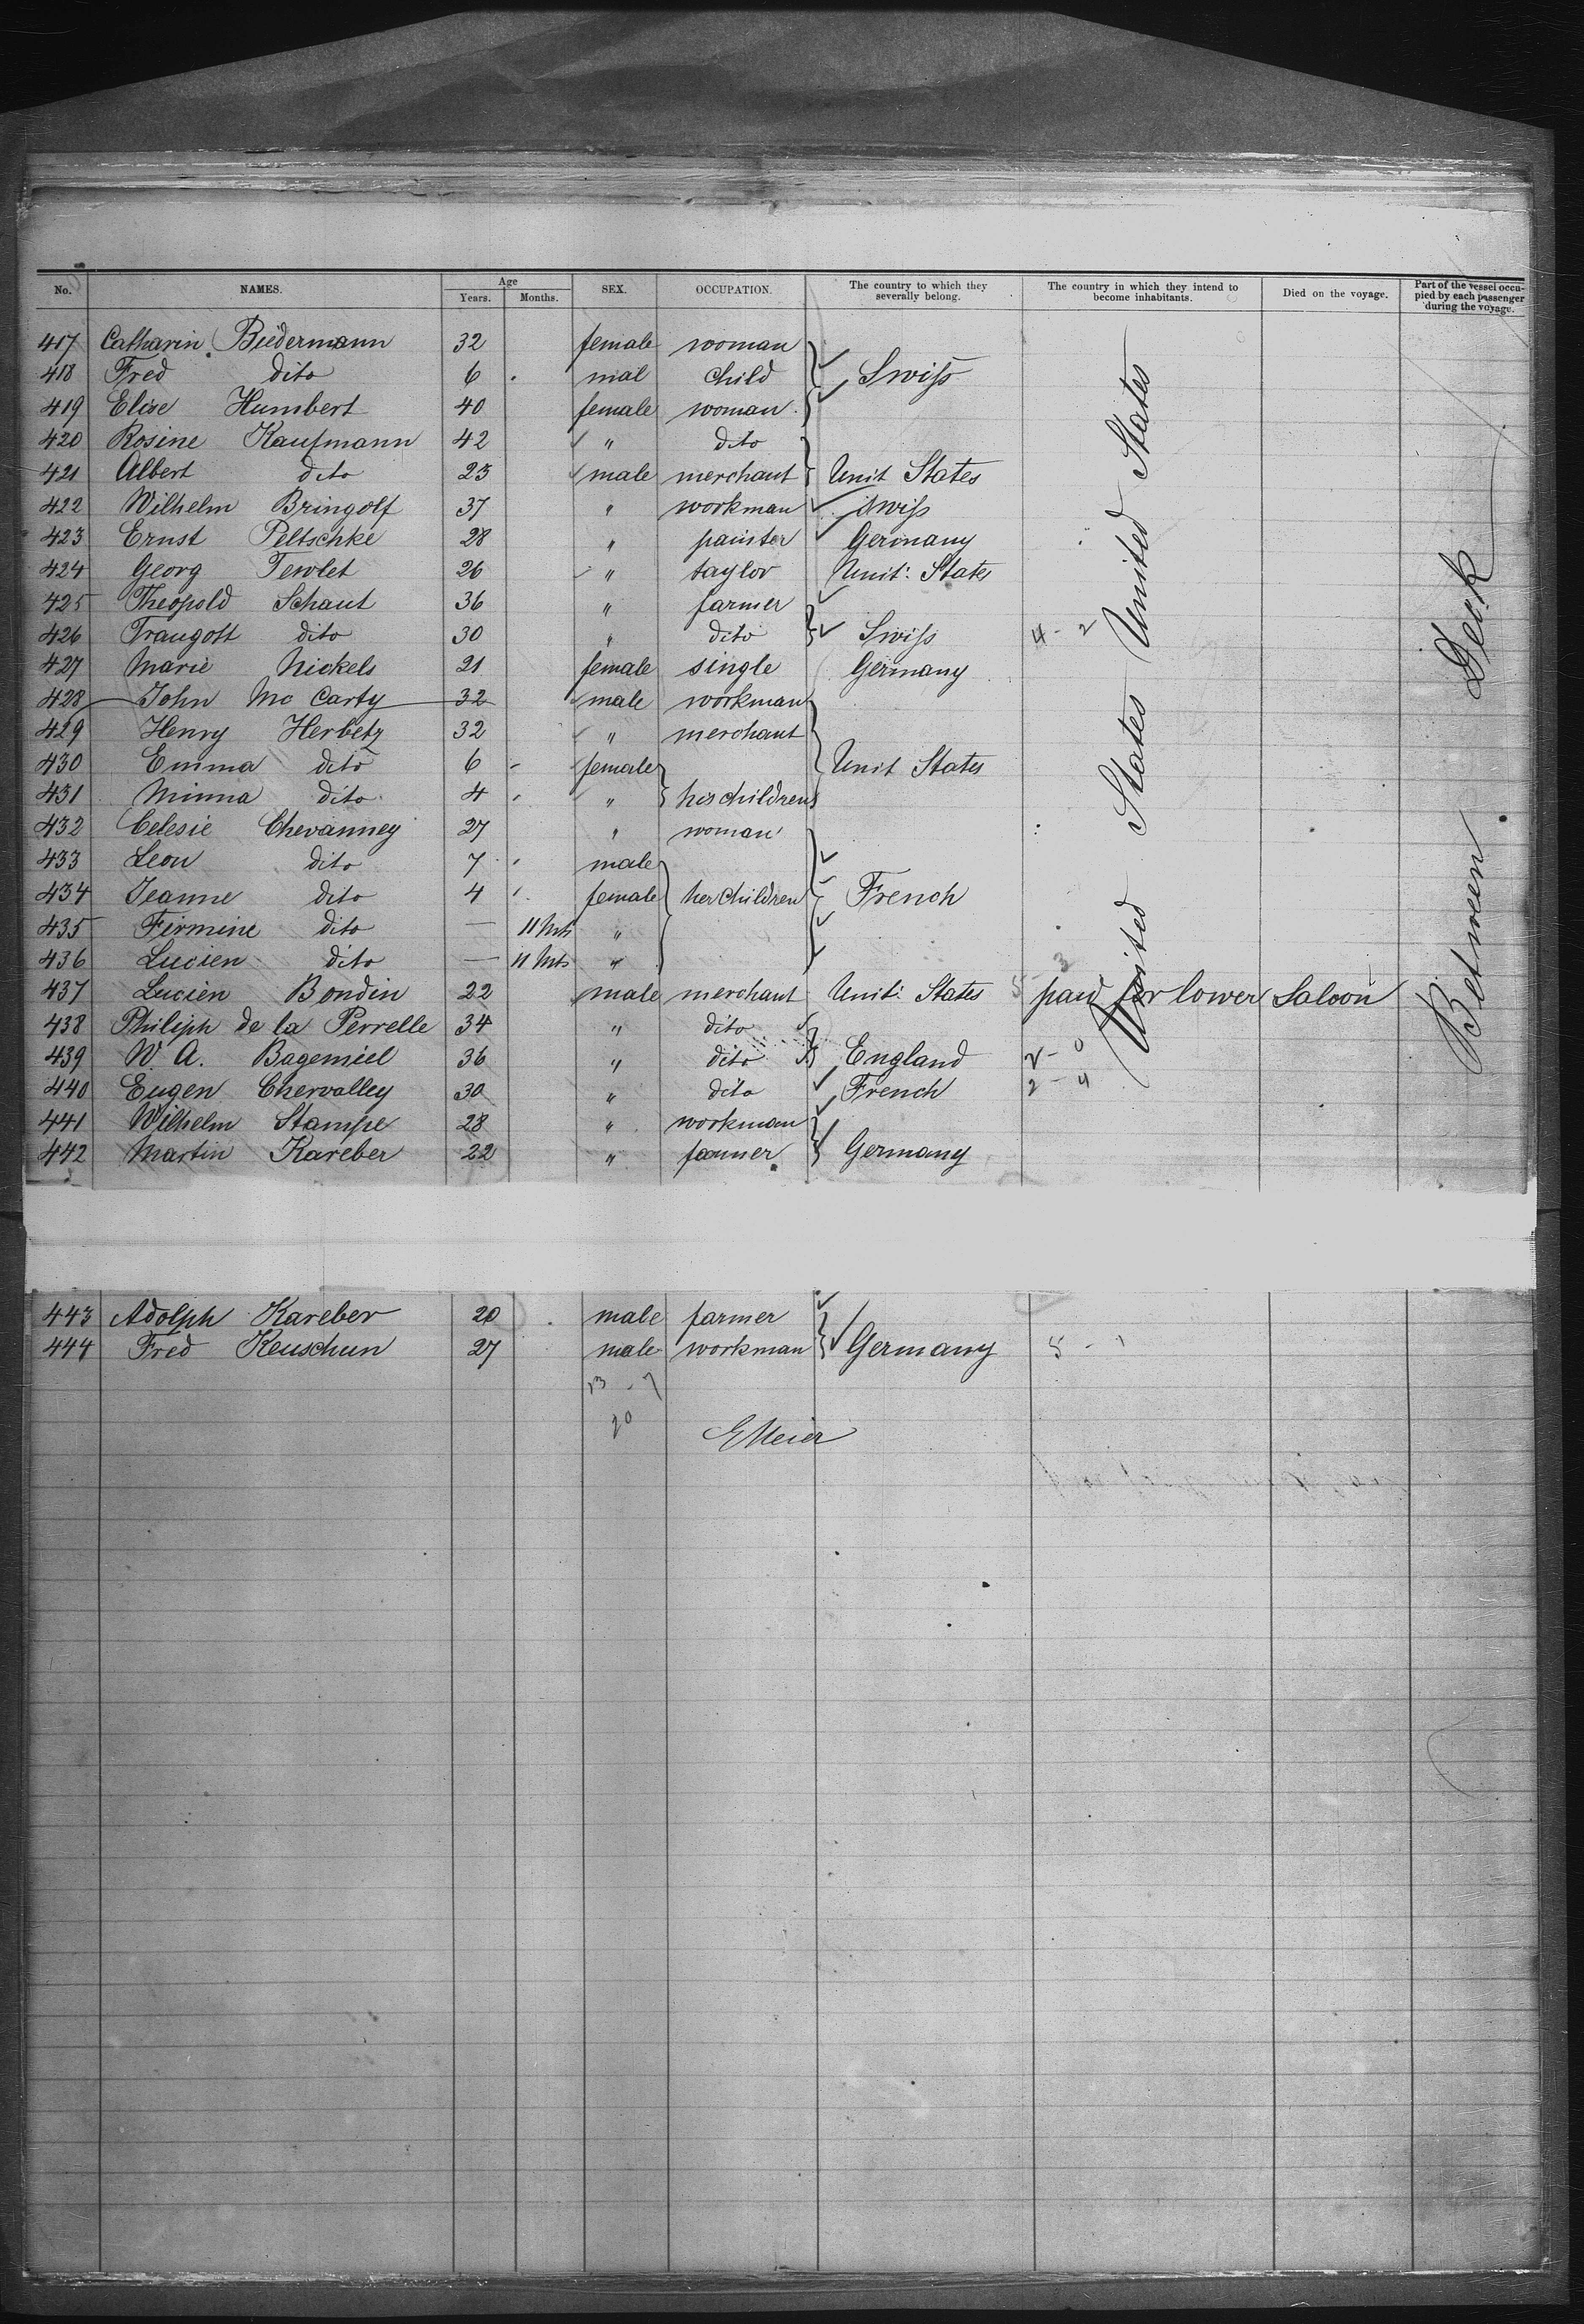 No. NAMES. Age Years. Months. SEX. OCCUPATION. The country to which they severally belong. The country in which they intend to become inhabitants. Died on the voyage. Part of the vessel occupied by each passenger during the voyage.
417 Catharin Biedermann 32 female woman
418 Fred dito 6 mal child Swiss
419 Elise Humbert 40 female woman
420 Rosine Kaufmann 42 " dito
421 Albert dito 23 male merchant Unit States
422 Wilhelm Bringolf 37 " workman Swiss
423 Ernst Peltschke 28 " painter Germany
424 Georg Tewlet 26 " taylor Unit: States
425 Theopold Schaut 36 " farmer
426 Traugott dito 30 " dito Swiss 4 - 2
427 Marie Nickels 21 female single Germany
428 John Mc Carty 32 male workman
429 Henry Herbetz 32 " merchant
430 Emma dito 6 female Unit States
431 Minna dito 4 " his childrens
432 Celesie Chevanney 27 " woman
433 Leon dito 7 male
434 Jeanne dito 4 female her children French
435 Firmine dito — 11 Mts "
436 Lucien dito — 11 Mts "
437 Lucien Bondin 22 male merchant Unit: States 5 - 3 paid for lower Saloon
438 Philiph de la Perrelle 34 " dito
439 W. A. Bagemiel 36 " dito England 2 - 0
440 Eugen Chervalley 30 " dito French 2 - 4
441 Wilhelm Stampe 28 " workman
442 Martin Kareber 22 " farmer Germany
United States United States
Between Deck
443 Adolph Kareber 20 male farmer
444 Fred Keuschun 27 male workman Germany 5 - 1
13 - 7
20
EMeier